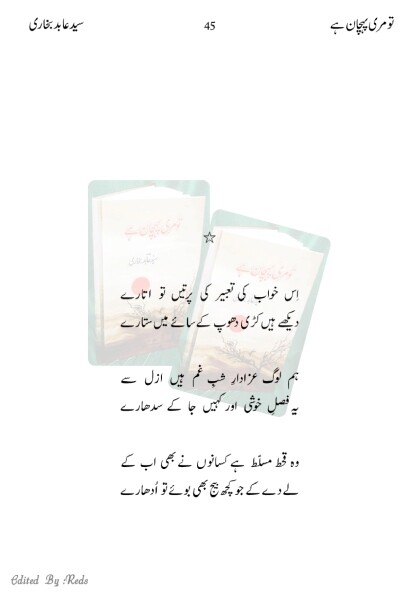 تو مری پہچان ہے 45 سید عابد بخاری
☆
اِس خواب کی تعبیر کی پرتیں تو اتارے
دیکھے ہیں کڑی دھوپ کے سائے میں ستارے
ہم لوگ عزادارِ شبِ غم ہیں ازل سے
یہ فصلِ خوشی اور کہیں جا کے سدھارے
وہ قحط مسلّط ہے کسانوں نے بھی اب کے
لے دے کے جو کچھ بیج بھی بوئے تو اُدھارے
Edited By Reds